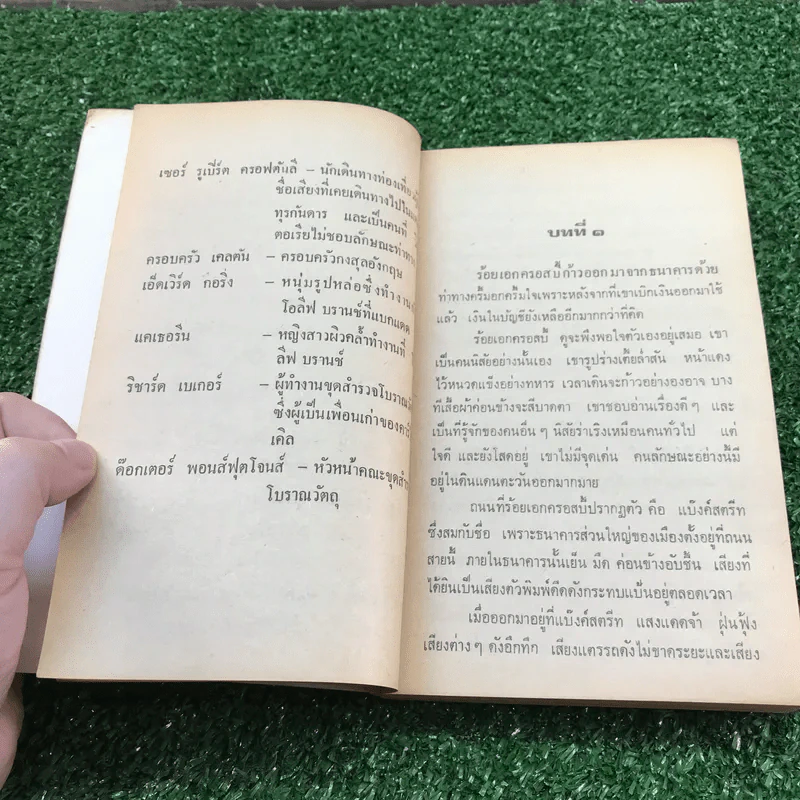 เซอร์ รูเบิร์ต ครอฟตันลี – นักเดินทางท่องเที่ยว
ชื่อเสียงที่เคยเดินทางไปใน
ทุรกันดาร และเป็นคนที่
ตอเรียไม่ชอบลักษณะท่าทาง
ครอบครัว เคลตัน – ครอบครัวกงสุลอังกฤษ
เอ็ดเวิร์ด กอริ่ง – หนุ่มรูปหล่อซึ่งทำงาน
โอลีฟ บรานช์ที่แบกแดด
แคเธอรีน – หญิงสาวผิวคล้ำทำงานที่
ลีฟ บรานช์
ริชาร์ด เบเกอร์ – ผู้ทำงานขุดสำรวจโบราณ
ซึ่งผู้เป็นเพื่อนเก่าของ
เคิล
ด๊อกเตอร์ พอนส์ฟุตโจนส์ – หัวหน้าคณะขุดสำ
โบราณวัตถุ
บทที่ ๑
ร้อยเอกครอสบี้ก้าวออกมาจากธนาคารด้วย
ท่าทางครึ้มอกครึ้มใจเพราะหลังจากที่เขาเบิกเงินออกมาใช้
แล้ว เงินในบัญชียังเหลืออีกมากกว่าที่คิด
ร้อยเอกครอสบี้ ดูจะพึงพอใจตัวเองอยู่เสมอ เขา
เป็นคนนิสัยอย่างนั้นเอง เขารูปร่างเตี้ยล่ำสัน หน้าแดง
ไว้หนวดแข็งอย่างทหาร เวลาเดินจะก้าวอย่างองอาจ บาง
ทีเสื้อผ้าค่อนข้างจะสีบาดตา เขาชอบอ่านเรื่องดีๆ และ
เป็นที่รู้จักของคนอื่นๆ นิสัยร่าเริงเหมือนคนทั่วไป แต่
ใจดี และยังโสดอยู่ เขาไม่มีจุดเด่น คนลักษณะอย่างนี้มี
อยู่ในดินแดนตะวันออกมากมาย
ถนนที่ร้อยเอกครอสบี้ปรากฏตัว คือ แบ๊งค์สตรีท
ซึ่งสมกับชื่อ เพราะธนาคารส่วนใหญ่ของเมืองตั้งอยู่ที่ถนน
สายนี้ ภายในธนาคารนั้นเย็น มืด ค่อนข้างอับชื้น เสียงที่
ได้ยินเป็นเสียงตัวพิมพ์ดีดดังกระทบแป้นอยู่ตลอดเวลา
เมื่อออกมาอยู่ที่แบ๊งค์สตรีท แสงแดดจ้า ฝุ่นฟุ้ง
เสียงต่างๆ ดังอึกทึก เสียงแตรรถดังไม่ขาดระยะและเสียง